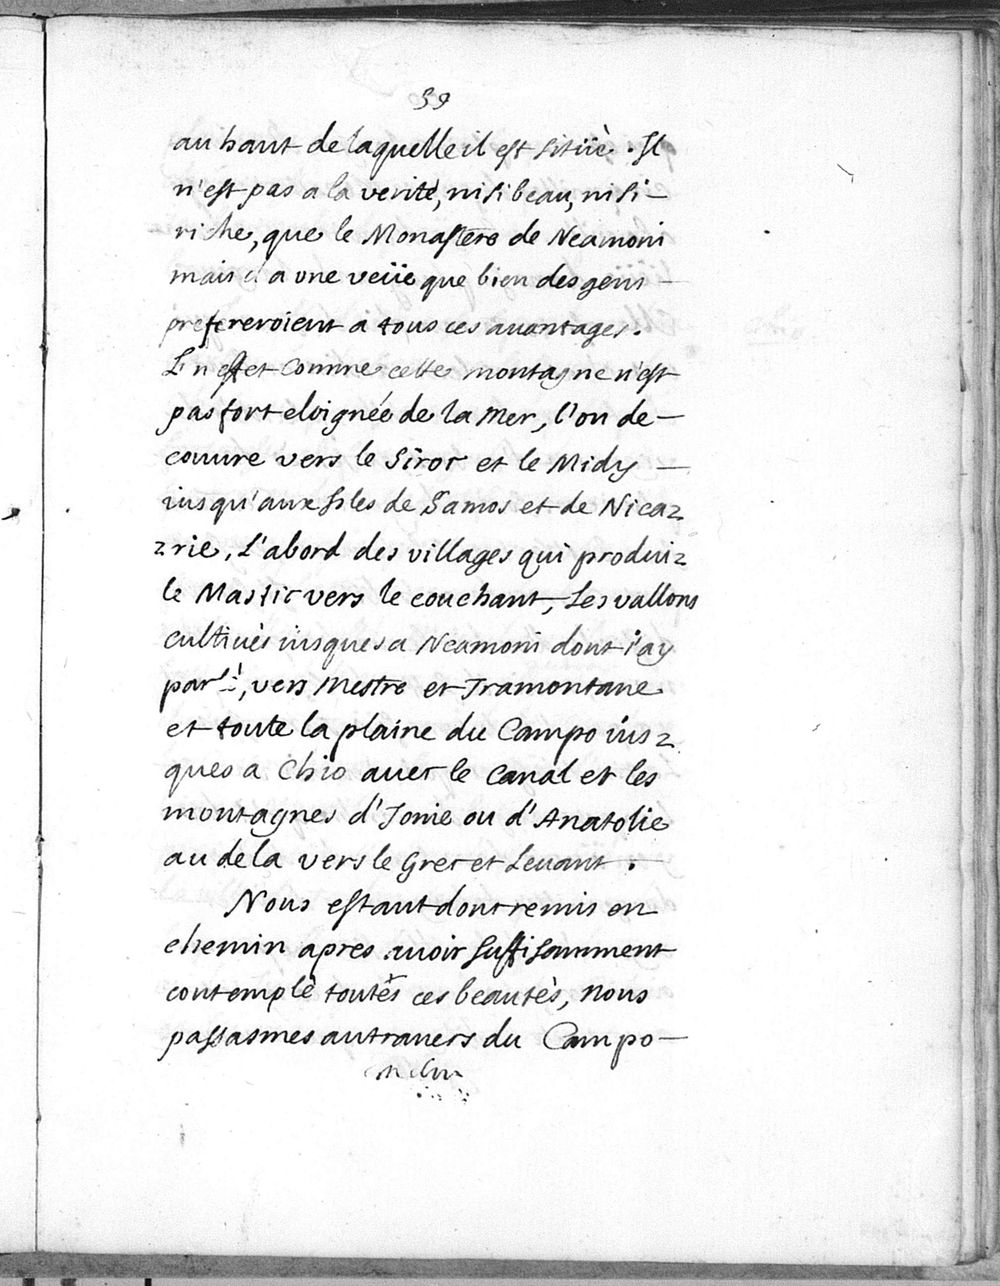 59
au haut de laquelle il est sitüè. Il
n'est pas a la verité, ni si beau, ni si –
riche, que le Monastere de Neamoni
mais il a une veüe que bien des gens –
prefereroient a tous ces auantages.
En effet comme cette montagne n'est
pas fort eloignée de la Mer, l'on de –
couure vers le Siroc et le Midy –
iusqu'aux Isles de Samos et de Nica=
=rie, L'abord des villages qui produi=
le Mastic vers le couchant, Les vallons
cultiuès iusques a Neamoni dont i'ay
parlè, vers Mestre et Tramontane
et toute la plaine du Campo ius=
ques a Chio auec le Canal et les
montagnes d'Ionie ou d'Anatolie
au dela vers le Grec et Leuant.
Nous estant donc remis en
chemin apres auoir suffisamment
contemplè toutes ces beautès, Nous
passasmes au trauers du Campo –